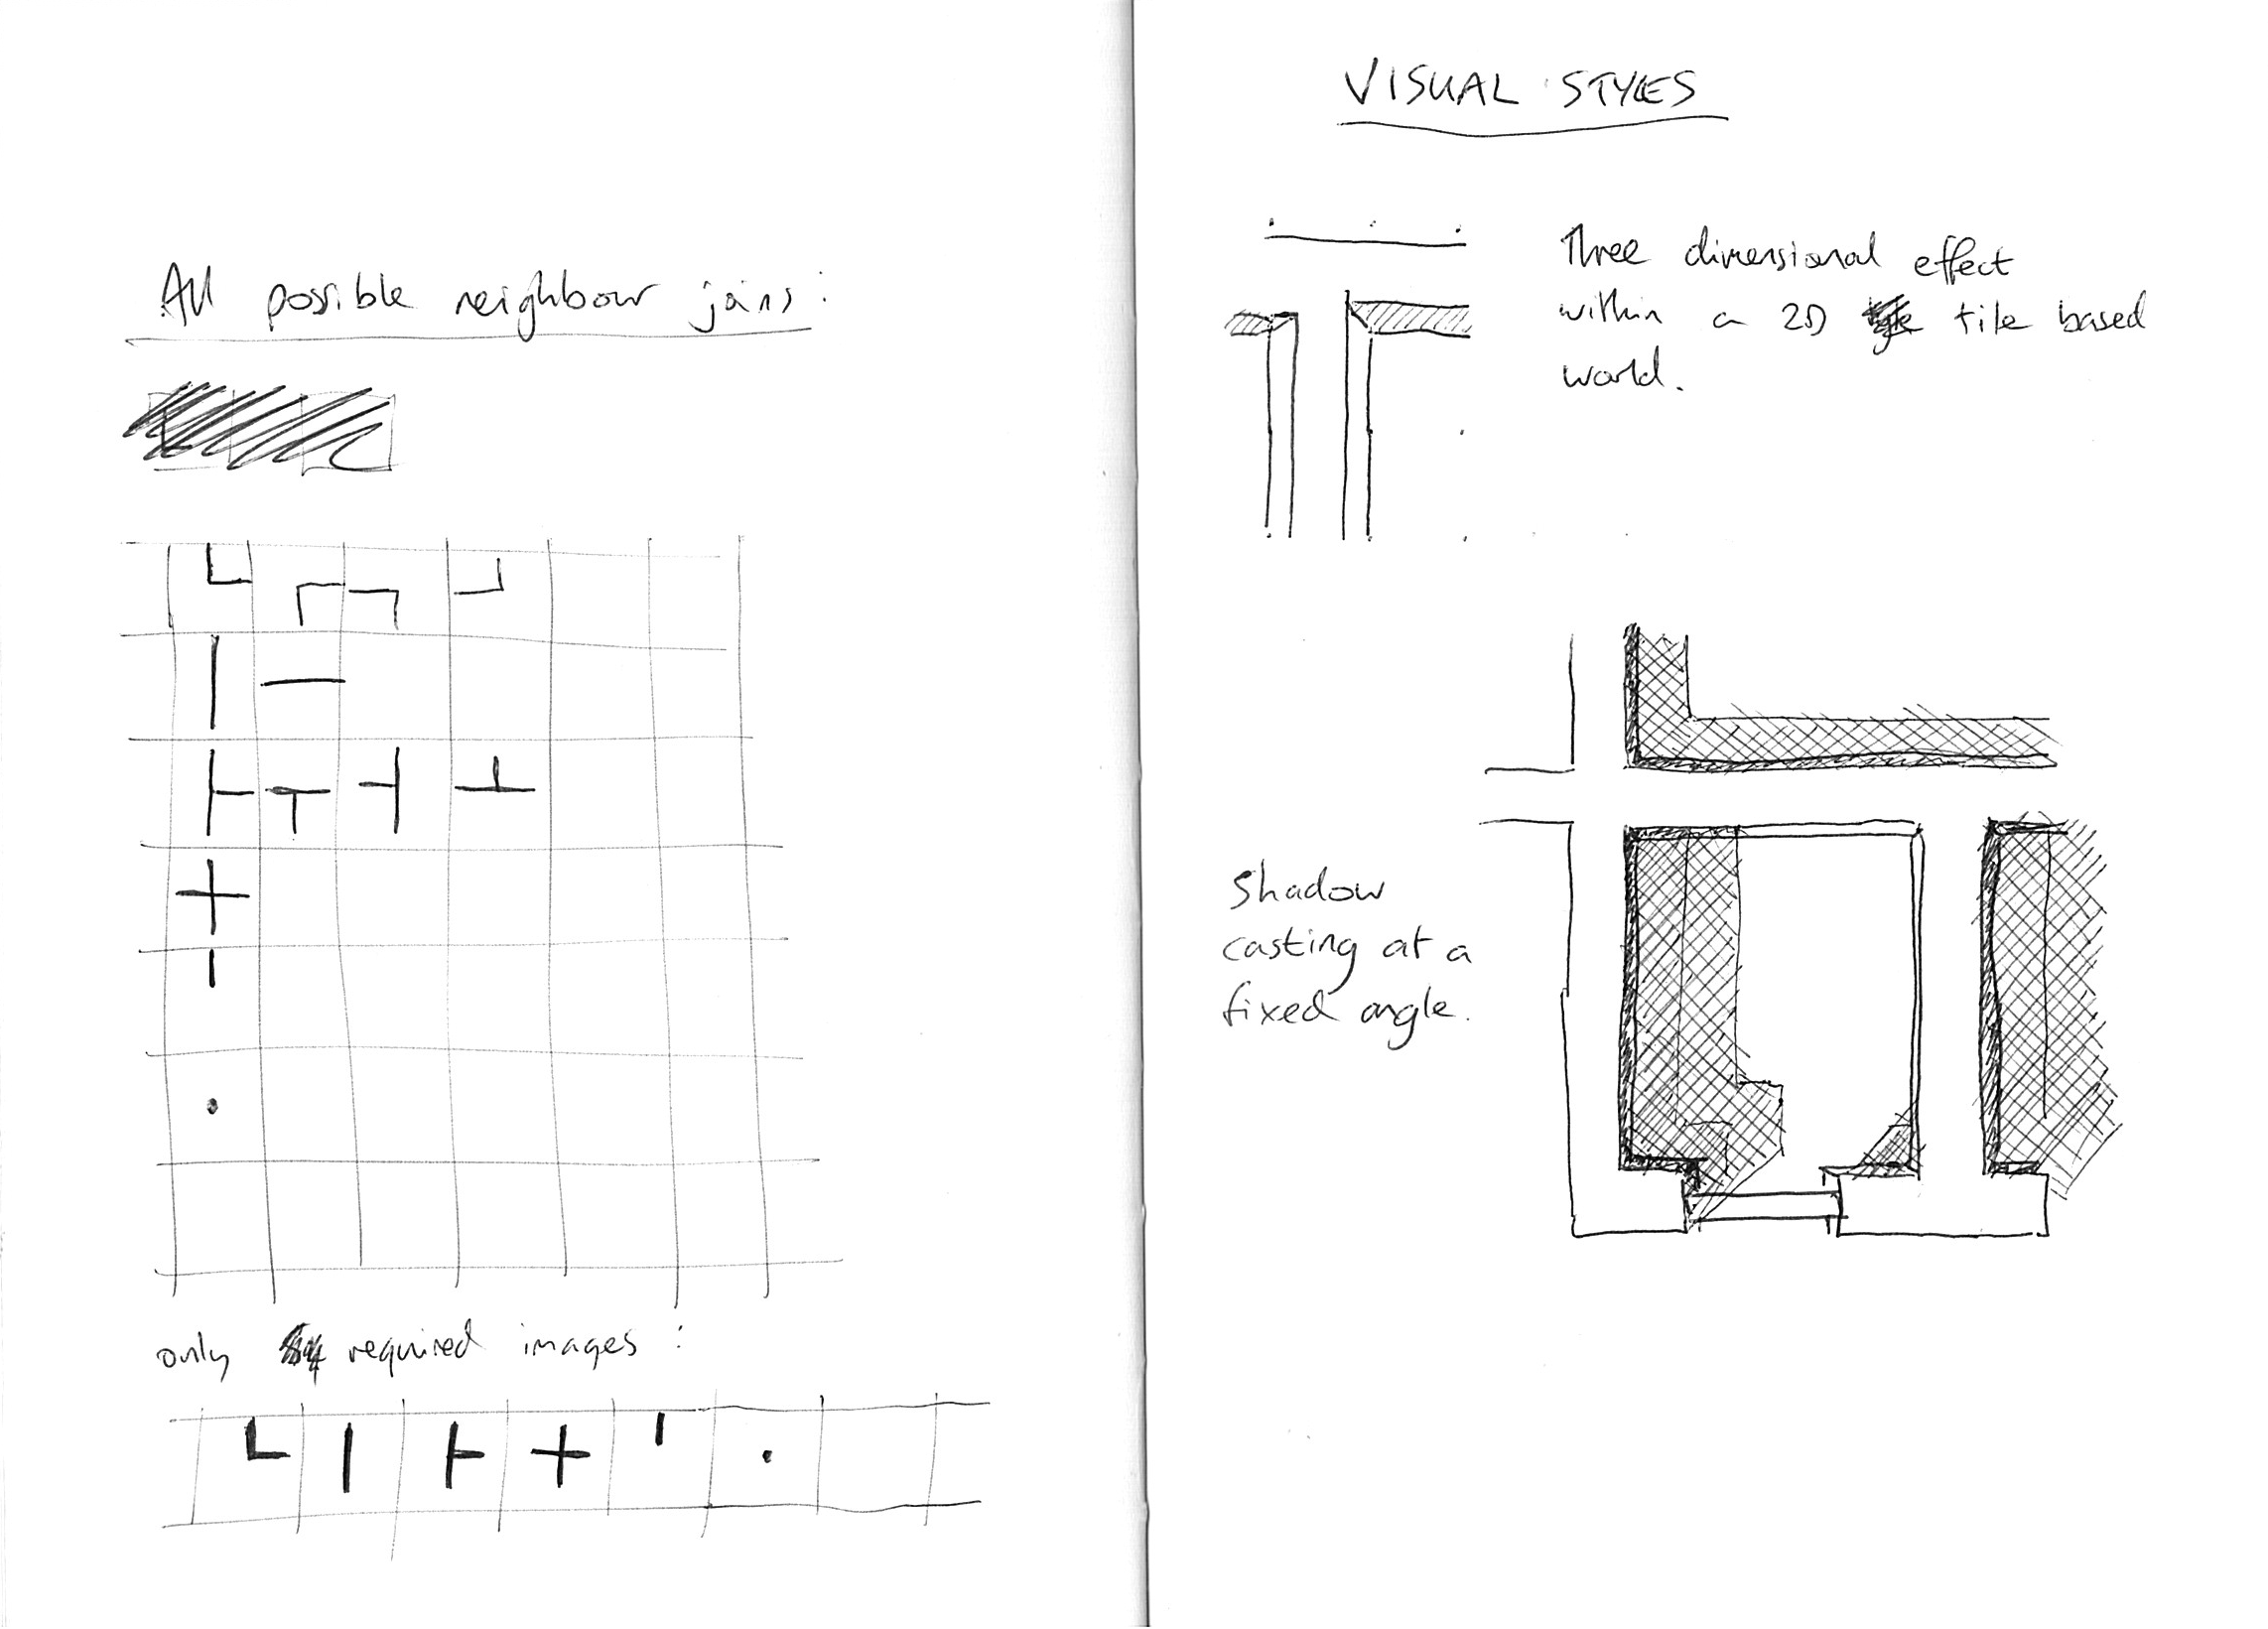 All possible neighbour joins:
only required images:
VISUAL STYLES
Three dimensional effect
within a 2D tile based
world.
Shadow
casting at a
fixed angle.